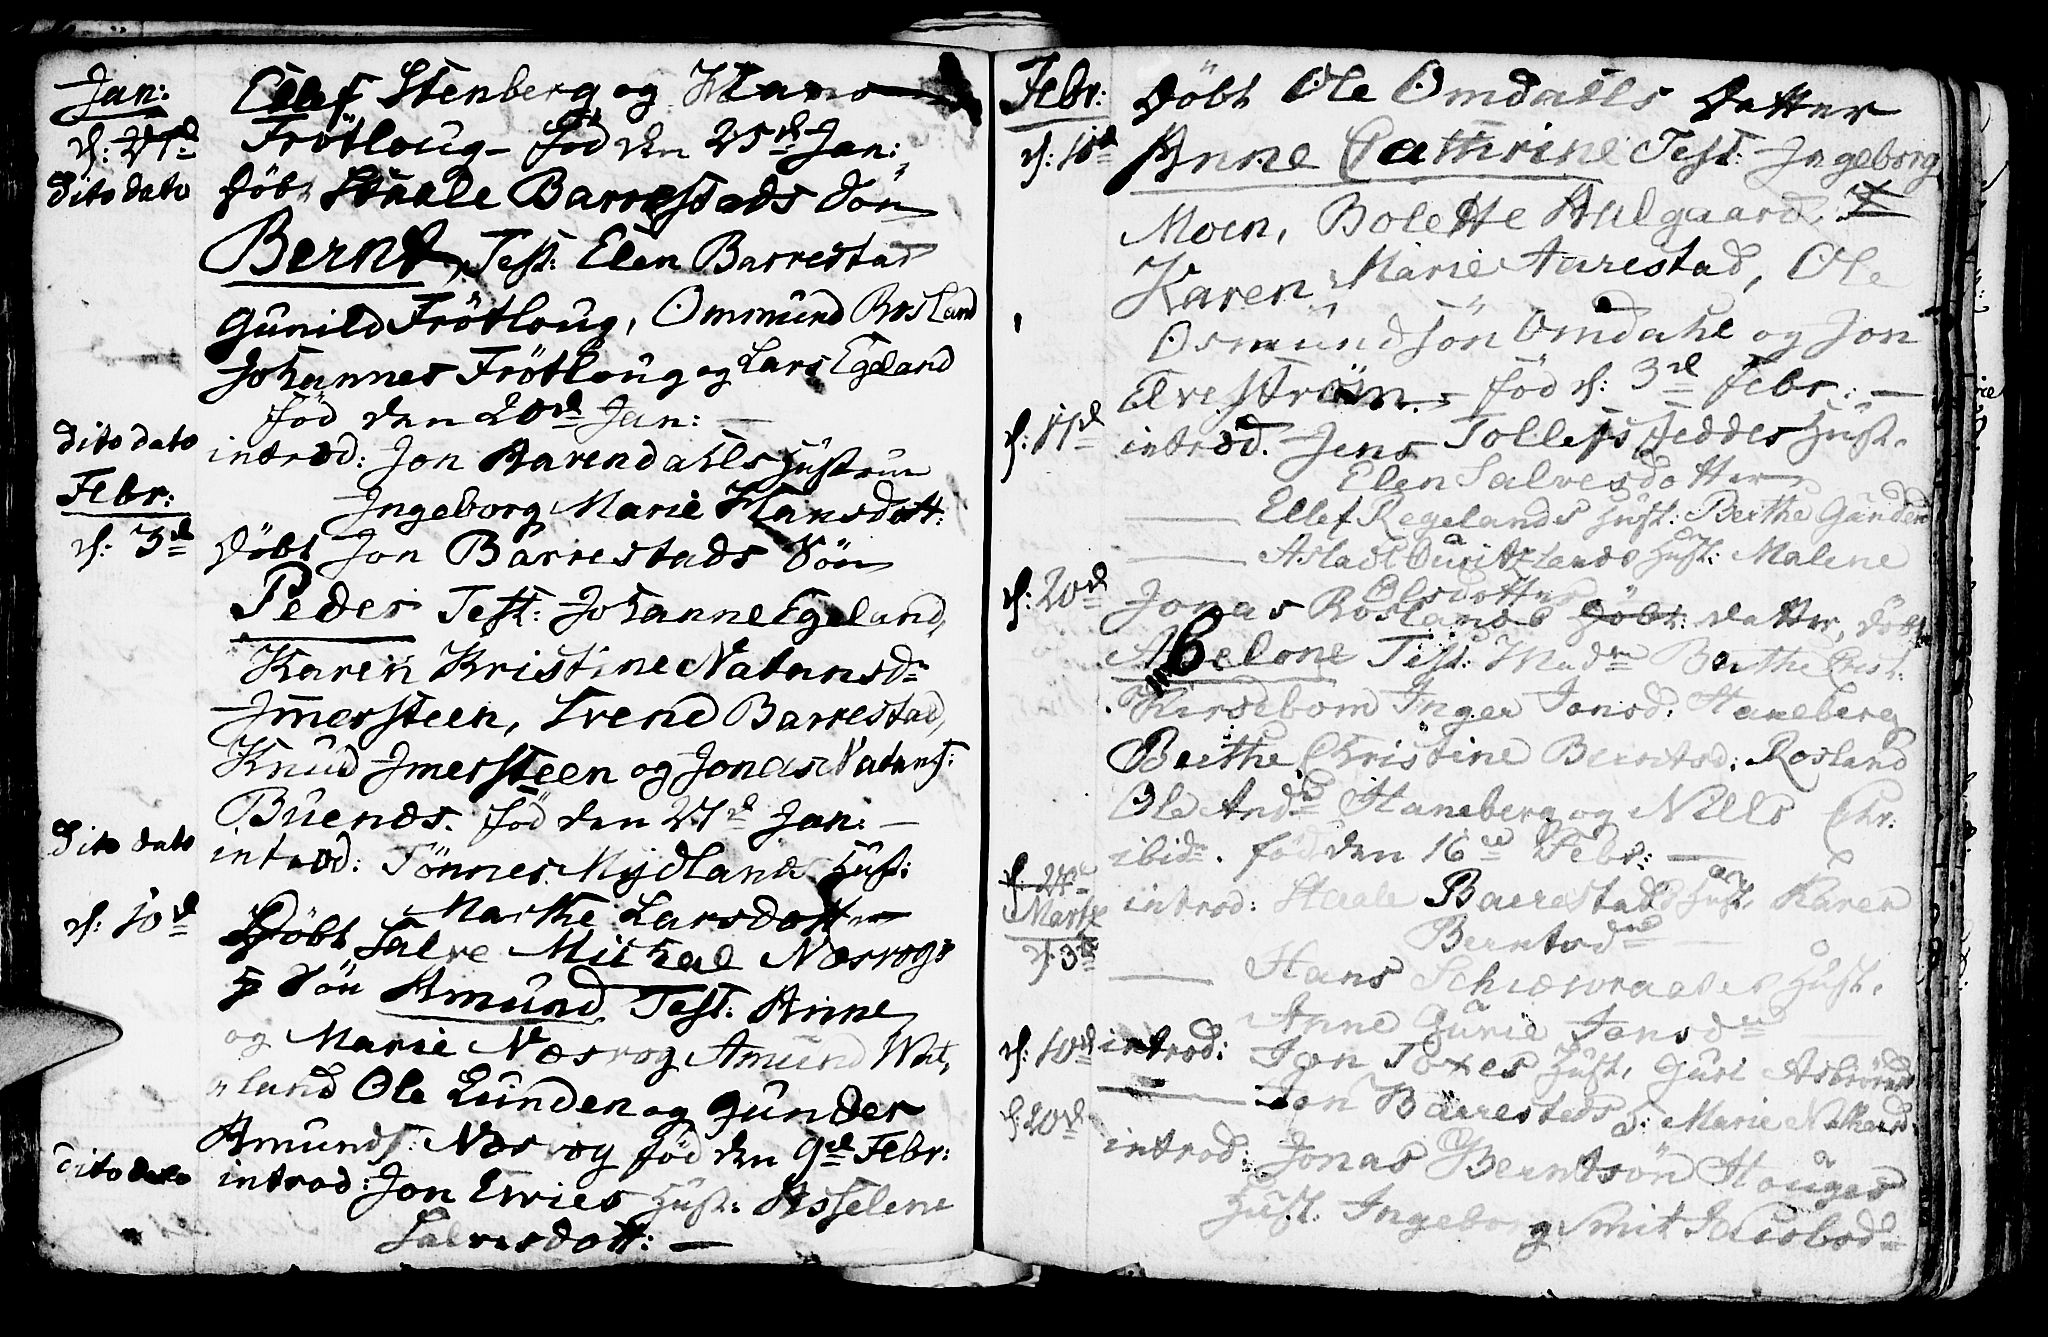 Jan: Ellef Stenberg og Hans
d: 27d Frötloug - föd den 25d Jan:
Dito dato Döbt Staale Barrestads Sön
Bernt, Test: Elen Barrestad
Gunild Frötloug, Ommund Rosland
Johannes Frötloug og Lars Egeland
föd den 20d Jan: —
Dito dato introd: Jon Aarendahls Hustrue
Febr: Ingeborg Marie Hansdott:
d: 3d Döbt Jon Barrestads Sön
Peder Test: Johanne Egeland,
Karen Kristine Natansdr
Imersteen, Trend Barrestad,
Knud Imersteen og Jonas Natans:
Buenes. föd den 27d Jan: —
Dito dato introd: Tönnes Mydlands Hust:
Marthe Larsdotter
d: 10d Döbt Salve Michal Næsvogs
Sön Amund Test: Anne
og Marie Næsvog Amund Wat,
"land Ole Lunden og Gunder
Amunds: Næsvog föd den 9d Febr:
Dito dato introd: Jon Evies Hust: Asselene
Salvesdott: —
Febr: Döbt Ole Omdahls Datter
d: 10d Anne Cathrine Test: Ingeborg
Moen, Bolette Aulgaard,
Karen Marie Aurestad, Ole
Osmundsön Omdahl og Jon
Elveström. föd d: 3d Febr: —
d: 17d introd. Jens Tollefs Heddes Hust.
Elen Salvesdotter
— Ellef Regelands Hust: Berthe Gunder
— Aslach Hust: Malene
Olsdotter
d: 20d Jonas Roslands Döbt: datter, döbt
Abelone Test: Madm Berthe Christ:
Kirsebom Inger Jonsd: Haneberg
Berthe Christine Berntsd: Rosland
Ole And: Haneberg og Nells Chr:
ibid. föd den 16d Febr: —
d: 24d introd: Staale Barrestads Hust Karen
Martz Berntsd —
d: 3d — Hans Hust.
Anne Gurie Jonsd —
d: 10d introd: Jon Toxes Hust, Guri
— Jon Barrestads d: Marie
d: 20d introd: Jonas Berntsön Houges
Hust: Ingeborg Smit Jacobsd